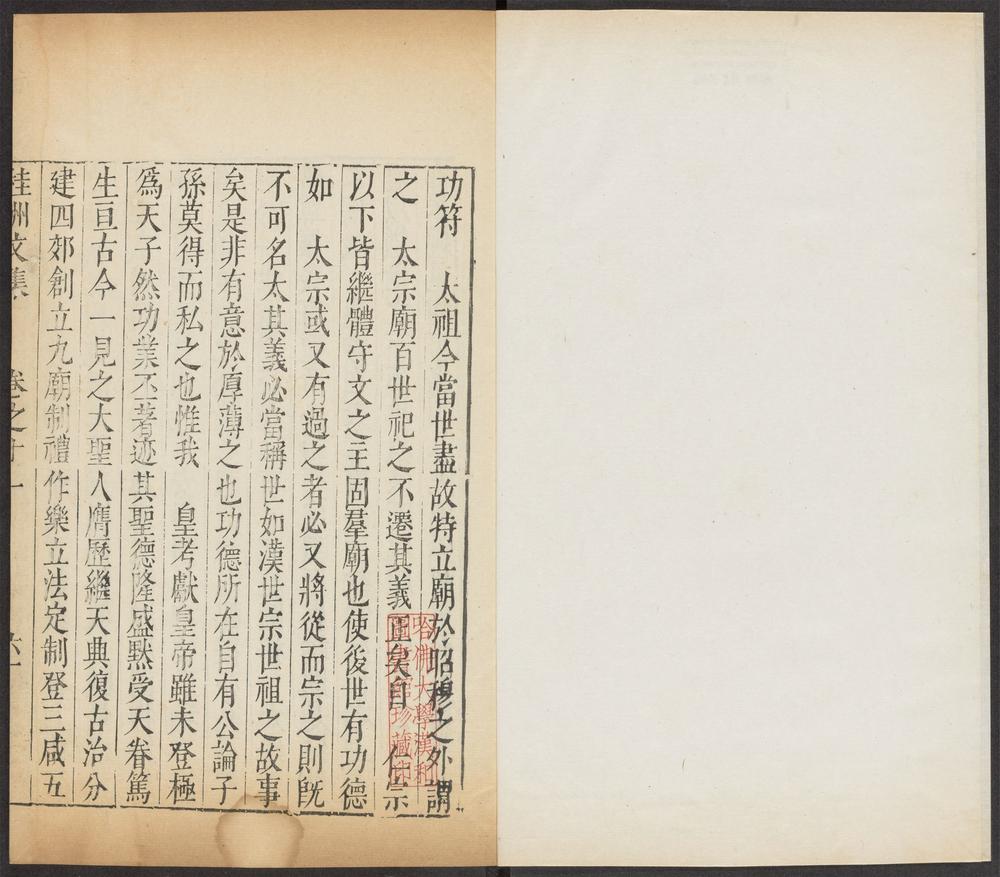 功符　太祖今當世盡故特立廟於昭穆之外謂
之　太宗廟百世祀之不遷其義正矣自　仁宗
以下皆繼體守文之主固羣廟也使後世有功德
如　太宗或又有過之者必又將從而宗之則旣
不可名太其義必當稱世如漢世宗世祖之故事
矣是非有意於厚薄之也功德所在自有公論子
孫莫得而私之也惟我　皇考獻皇帝雖未登極
爲天子然功業丕著迹其聖德隆盛黙受天眷篤
生亘古今一見之大聖人膺歷繼天典復古治分
建四郊創立九廟制禮作樂立法定制登三咸五
桂洲文集　卷之十一
哈佛大學漢和
圖書館珍藏印